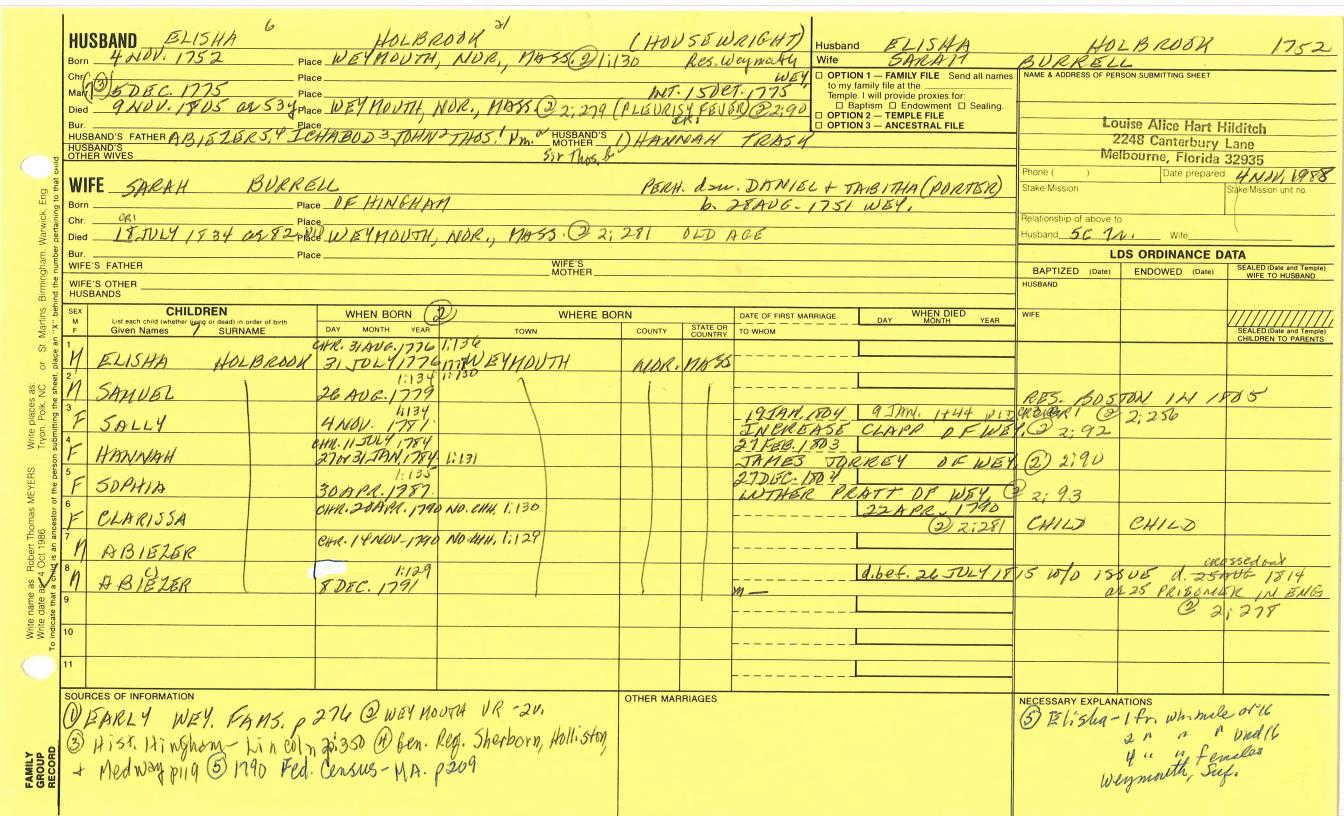 HUSBAND ELISHA 6 HOLBROOK 21 (HOUSEWRIGHT)
Born 4 NOV. 1752 Place WEYMOUTH, NOR., MASS. ② 1:130 Res. Weymouth
Chr. Place WEY
Mar. ③ 5 DEC. 1775 INT. 15 OCT. 1775
Died 9 NOV. 1805 ae 53y Place WEYMOUTH, NOR., MASS ② 2; 279 (PLEURISY FEVER) ② 2:90
Bur. Place
HUSBAND'S FATHER ABIEZER5,4 ICHABOD3 JOHN2 THOS.1 Wm. HUSBAND'S MOTHER 1) HANNAH TRASK
HUSBAND'S OTHER WIVES Sir Thos.
Husband ELISHA HOLBROOK 1752
Wife SARAH BURRELL
☐ OPTION 1 — FAMILY FILE Send all names
to my family file at the
Temple. I will provide proxies for:
☐ Baptism ☐ Endowment ☐ Sealing.
☐ OPTION 2 — TEMPLE FILE
☐ OPTION 3 — ANCESTRAL FILE
NAME & ADDRESS OF PERSON SUBMITTING SHEET
Louise Alice Hart Hilditch
2248 Canterbury Lane
Melbourne, Florida 32935
Phone ( ) Date prepared 4 NOV. 1988
Stake/Mission Stake/Mission unit no.
Relationship of above to
Husband Wife
WIFE SARAH BURRELL PERH. dau. DANIEL + TABITHA (PORTER)
Born Place OF HINGHAM b. 28 AUG. 1751 WEY.
Chr. CR1 Place
Died 18 JULY 1834 ae 82 Place WEYMOUTH, NOR., MASS. ② 2; 281 OLD AGE
Bur. Place
WIFE'S FATHER WIFE'S MOTHER
WIFE'S OTHER HUSBANDS
LDS ORDINANCE DATA
BAPTIZED (Date) ENDOWED (Date) SEALED (Date and Temple) WIFE TO HUSBAND
HUSBAND
WIFE
SEALED (Date and Temple) CHILDREN TO PARENTS
SEX M F
CHILDREN
List each child (whether living or dead) in order of birth
Given Names SURNAME
WHEN BORN ② WHERE BORN
DAY MONTH YEAR TOWN COUNTY STATE OR COUNTRY
DATE OF FIRST MARRIAGE
TO WHOM
WHEN DIED
DAY MONTH YEAR
1 CHR. 31 AUG. 1776 1:136
M ELISHA HOLBROOK 31 JULY 1776 WEYMOUTH NOR. MASS
2 1:134 1:130
M SAMUEL 26 AUG. 1779 RES. BOSTON IN 1805
3 1:134 19 JAN. 1804 9 JAN. 1844 ② 2; 256
F SALLY 4 NOV. 1781 INCREASE CLAPP OF WEY. ② 2; 92
4 CHR. 11 JULY 1784 27 FEB. 1803
F HANNAH 27 or 31 JAN. 1784 1:131 JAMES TORREY OF WEY. ② 2:90
5 1:135 27 DEC. 1804
F SOPHIA 30 APR. 1787 LUTHER PRATT OF WEY. ② 2; 93
6 CHR. 20 APR. 1790 NO. CHH. 1:130 22 APR. 1790
F CLARISSA ② 2; 281 CHILD CHILD
7 CHR. 14 NOV. 1790 NO. CHH. 1:129
M ABIEZER
8 1:129 d. bef. 26 JULY 1815 W/O ISSUE d. 25 AUG 1814 crossed out
M ABIEZER 8 DEC. 1791 m— ae 25 PRISONER IN ENG
9 ② 2; 278
10
11
SOURCES OF INFORMATION
① EARLY WEY. FAMS. p 276 ② WEYMOUTH VR - 2v.
③ Hist. Hingham - Lincoln 2:350 ④ Gen. Reg. Sherborn, Holliston,
+ Medway p119 ⑤ 1790 Fed. Census - MA. p209
OTHER MARRIAGES
NECESSARY EXPLANATIONS
⑤ Elisha - 1 fr. wh. male ov 16
2 " " " und 16
4 " " females
Weymouth, Suf.
FAMILY GROUP RECORD
Write name as: Robert Thomas MEYERS Write places as: Tryon, Polk, NC or St Martins, Birmingham, Warwick, Eng
Write date as: 4 Oct 1986
To indicate that a child is an ancestor of the person submitting the sheet, place an "X" behind the number pertaining to that child